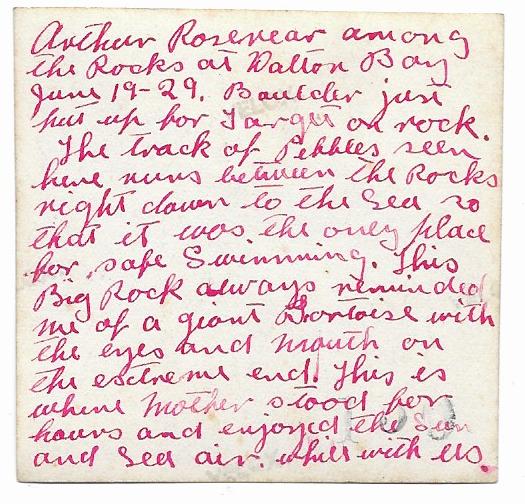 Arthur Rosevear among
the Rocks at Dalton Bay
June 19-29. Boulder just
put up for Target on rock.
The track of Pebbles seen
here runs between the Rocks
right down to the Sea so
that it was the only place
for safe Swimming. This
Big Rock always reminded
me of a giant Tortoise with
the eyes and mouth on
the extreme end. This is
where Mother stood for
hours and enjoyed the Sun
and Sea air. while with us.